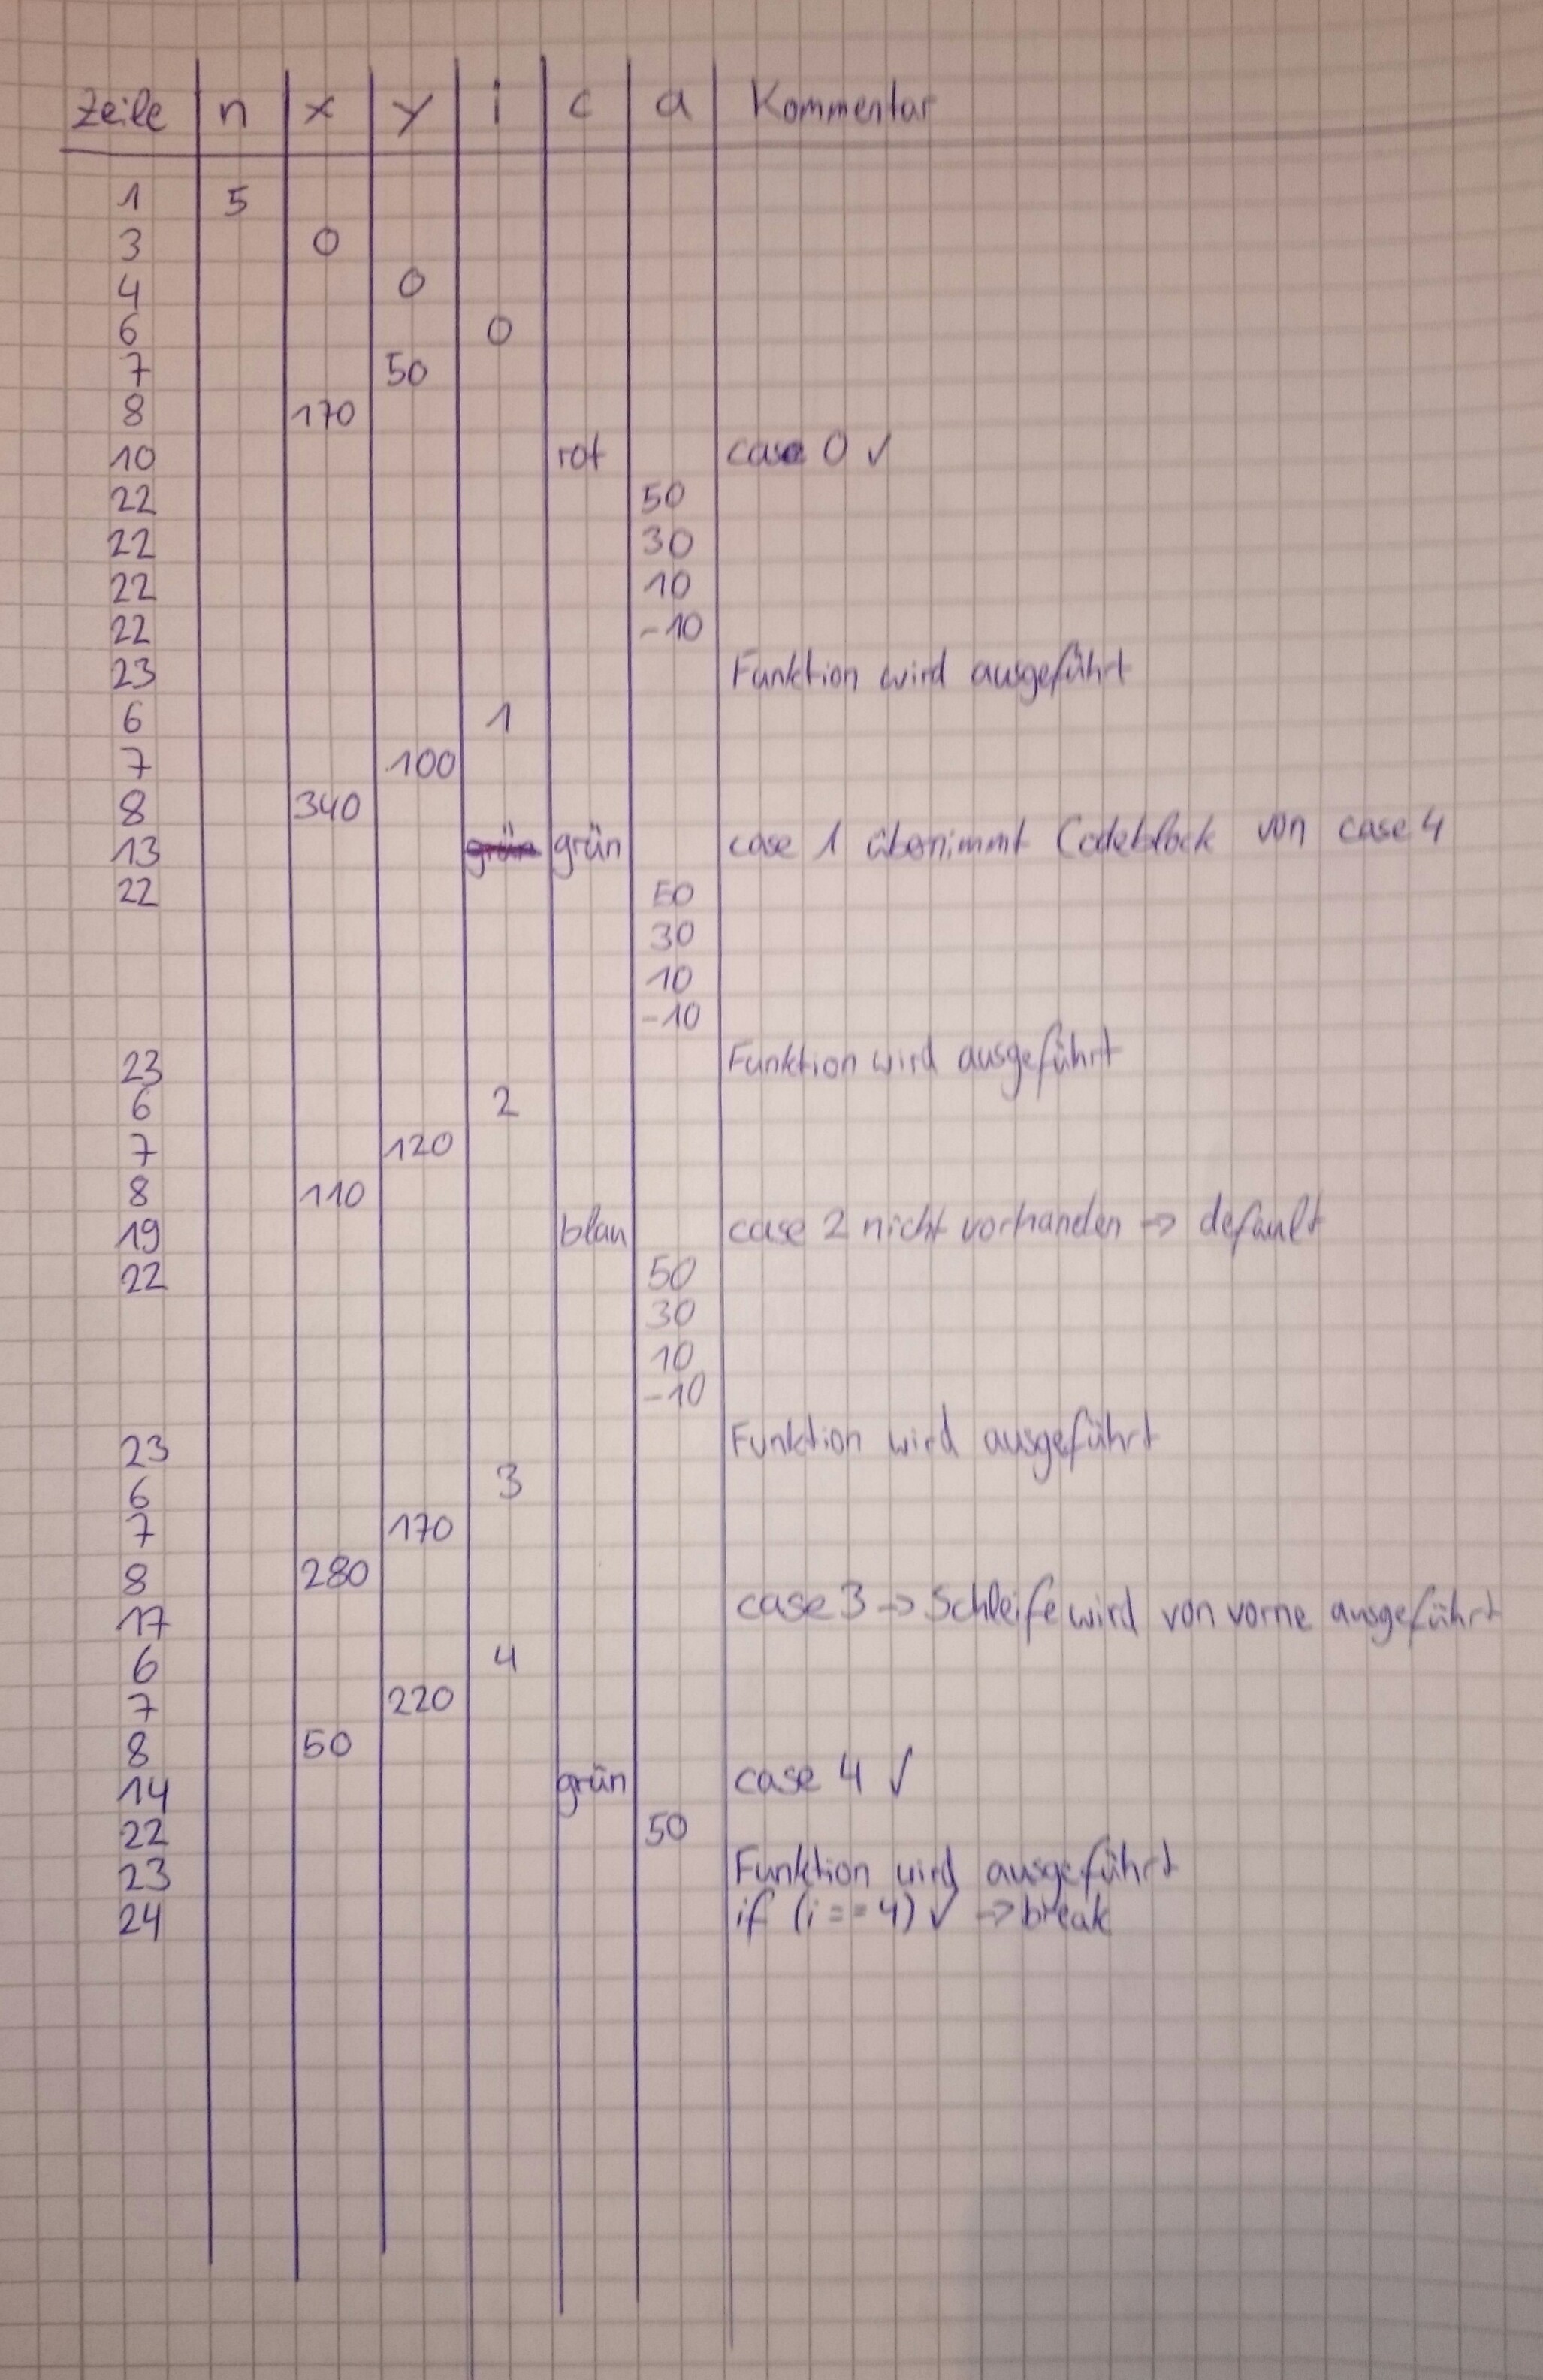 Zeile n x y i c a Kommentar
1 5
3 0
4 0
6 0
7 50
8 170
10 rot case 0 ✓
22 50
22 30
22 10
22 -10
23 Funktion wird ausgeführt
6 1
7 100
8 340
13 grün grün case 1 übernimmt Codeblock von case 4
22 50
30
10
-10
23 Funktion wird ausgeführt
6 2
7 120
8 110
19 blau case 2 nicht vorhanden -> default
22 50
30
10
-10
23 Funktion wird ausgeführt
6 3
7 170
8 280
17 case 3 -> Schleife wird von vorne ausgeführt
6 4
7 220
8 50
14 grün case 4 ✓
22 50
23 Funktion wird ausgeführt
24 if (i == 4) ✓ -> break